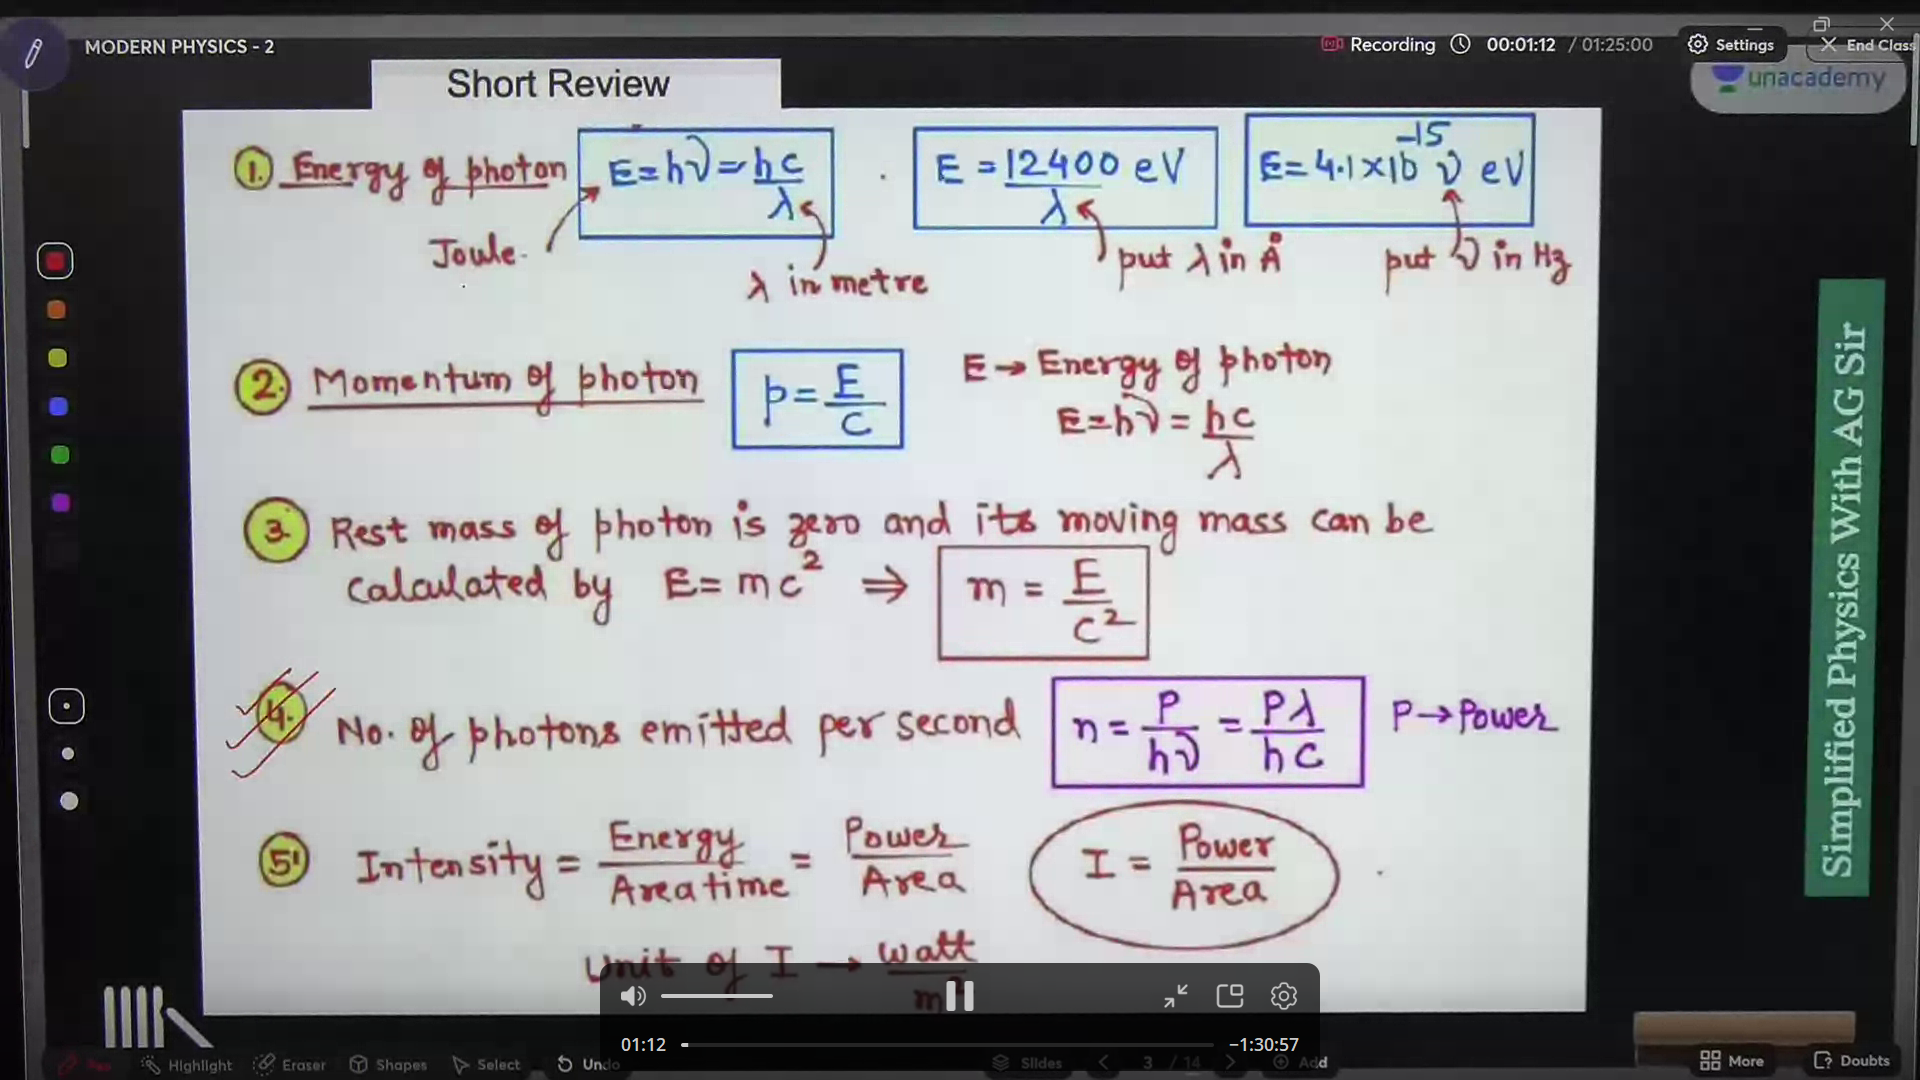 MODERN PHYSICS - 2
Recording 00:01:12 / 01:25:00 Settings End Class
unacademy
Short Review
1. Energy of photon E = hν = hc/λ E = 12400/λ eV E = 4.1×10⁻¹⁵ ν eV
Joule. λ in metre put λ in Å put ν in Hz
2. Momentum of photon p = E/C E → Energy of photon
E = hν = hc/λ
3. Rest mass of photon is zero and its moving mass can be
calculated by E = mc² ⇒ m = E/c²
4. No. of photons emitted per second n = P/hν = Pλ/hc P → Power
5. Intensity = Energy/Area time = Power/Area I = Power/Area
Unit of I → watt/m²
Simplified Physics With AG Sir
01:12 −1:30:57
Pen Highlight Eraser Shapes Select Undo Slides 3 / 14 Add More Doubts